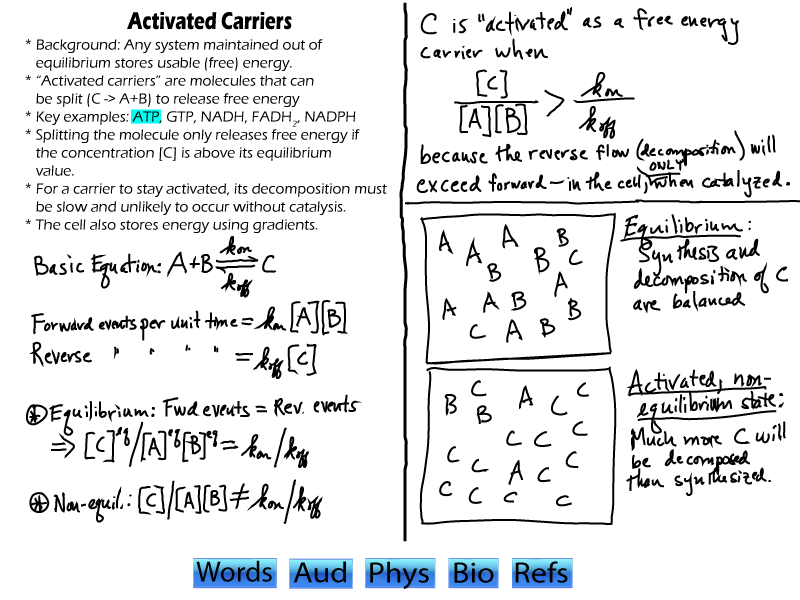 Activated Carriers
* Background: Any system maintained out of
equilibrium stores usable (free) energy.
* “Activated carriers” are molecules that can
be split (C -> A+B) to release free energy
* Key examples: ATP, GTP, NADH, FADH2, NADPH
* Splitting the molecule only releases free energy if
the concentration [C] is above its equilibrium
value.
* For a carrier to stay activated, its decomposition must
be slow and unlikely to occur without catalysis.
* The cell also stores energy using gradients.
Basic Equation: A+B ⇌ C
kon
koff
Forward events per unit time = kon [A][B]
Reverse " " " " = koff [C]
⊛ Equilibrium: Fwd events = Rev. events
⇒ [C]^eq/[A]^eq[B]^eq = kon/koff
⊛ Non-equil.: [C]/[A][B] ≠ kon/koff
C is "activated" as a free energy
carrier when
[C]/[A][B] > kon/koff
because the reverse flow (decomposition) will
exceed forward – in the cell, ONLY when catalyzed.
A A A B
B B C
A
A A B B
C A B
Equilibrium:
Synthesis and
decomposition of C
are balanced
B C A C C
B
C C C
C C A C C
C C C C
Activated, non-
equilibrium state:
Much more C will
be decomposed
than synthesized.
Words Aud Phys Bio Refs